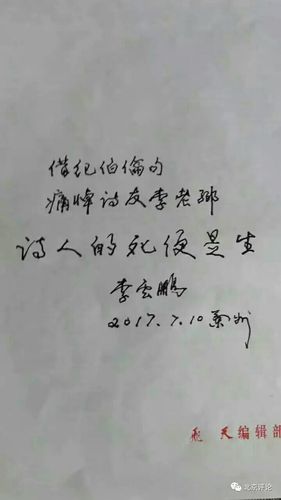 借纪伯伦句
痛悼诗友李老乡
诗人的死便是生
李云鹏
2017.7.10兰州
飞天编辑部
北京评论